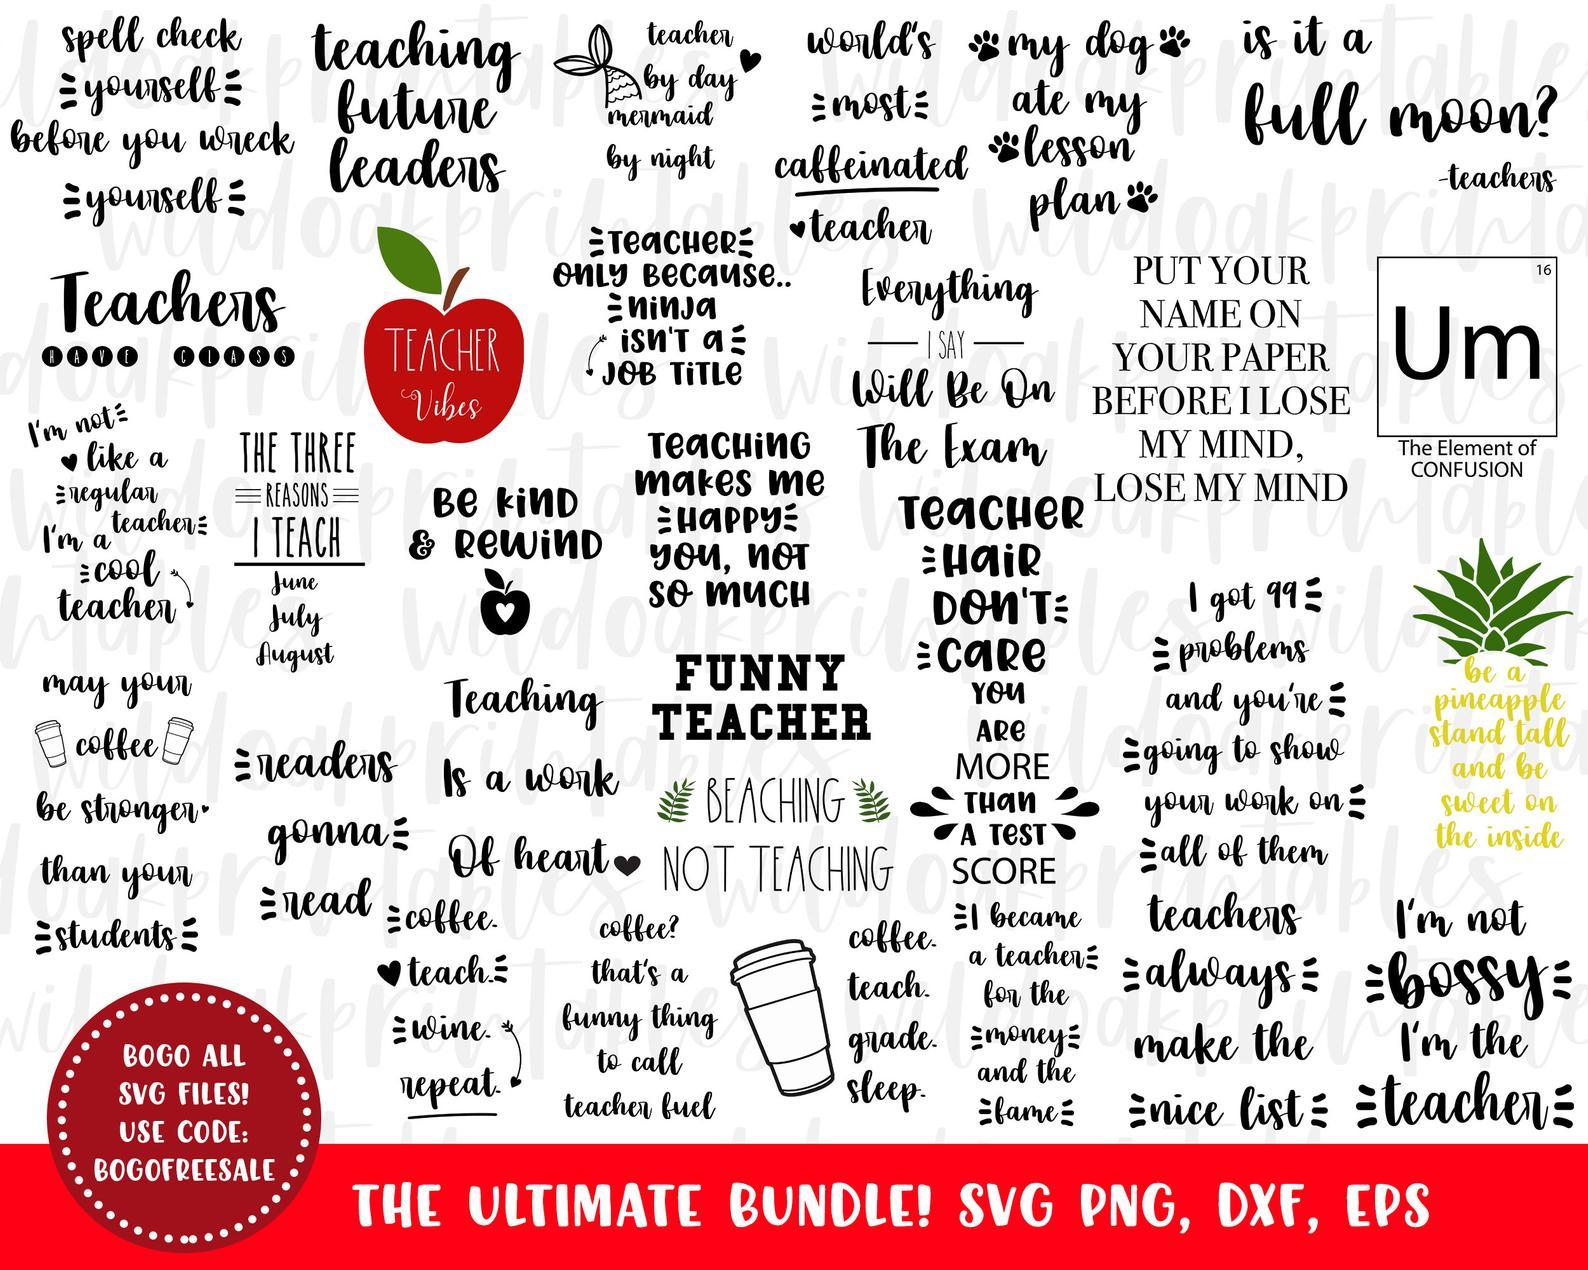 spell check
yourself
before you wreck
yourself
teaching
future
leaders
teacher
by day
mermaid
by night
world's
most
caffeinated
teacher
my dog
ate my
lesson
plan
is it a
full moon?
-teachers
Teachers
HAVE CLASS
TEACHER
Vibes
TEACHER
ONLY BECAUSE..
NINJA
ISN'T A
JOB TITLE
Everything
I SAY
Will Be On
The Exam
PUT YOUR
NAME ON
YOUR PAPER
BEFORE I LOSE
MY MIND,
LOSE MY MIND
16
Um
The Element of
CONFUSION
I'm not
like a
regular
teacher
I'm a
cool
teacher
THE THREE
REASONS
I TEACH
June
July
August
Be kind
& Rewind
Teaching
makes me
Happy
you, not
so much
Teacher
Hair
Don't
Care
I got 99
problems
and you're
going to show
your work on
all of them
be a
pineapple
stand tall
and be
sweet on
the inside
may your
coffee
be stronger
than your
students
readers
gonna
read
Teaching
Is a work
Of heart
FUNNY
TEACHER
BEACHING
NOT TEACHING
YOU
ARE
MORE
THAN
A TEST
SCORE
coffee.
teach.
wine.
repeat.
coffee?
that's a
funny thing
to call
teacher fuel
coffee.
teach.
grade.
sleep.
I became
a teacher
for the
money
and the
fame
teachers
always
make the
nice list
I'm not
bossy
I'm the
teacher
BOGO ALL
SVG FILES!
USE CODE:
BOGOFREESALE
THE ULTIMATE BUNDLE! SVG PNG, DXF, EPS
wildoakprintables